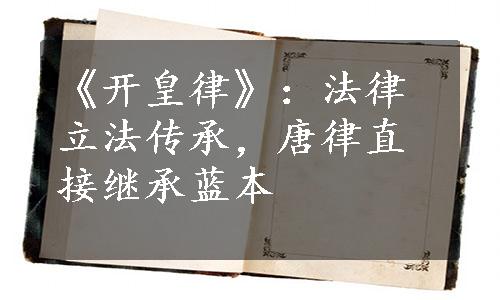 《开皇律》：法律
立法传承，唐律直
接继承蓝本